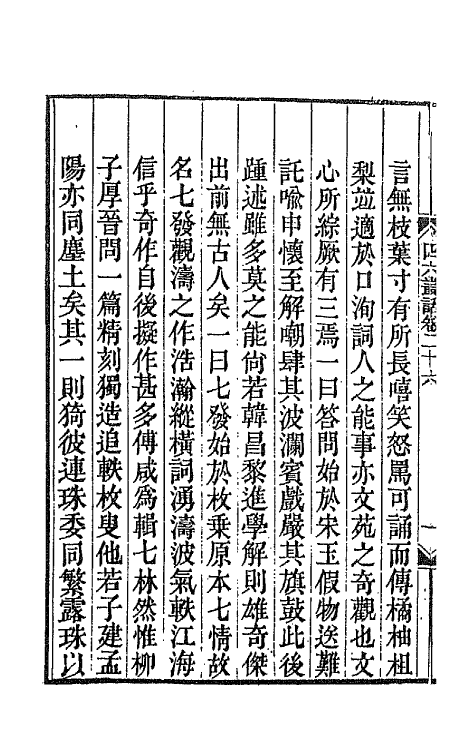 四六叢話卷二十六
一
言無枝葉寸有所長嘻笑怒罵可誦而傳橘柚柤
梨竝適於口洵詞人之能事亦文苑之奇觀也文
心所綜厥有三焉一曰答問始於宋玉假物送難
託喩申懷至解嘲肆其波瀾賓戲嚴其旗鼓此後
踵述雖多莫之能尙若韓昌黎進學解則雄奇傑
出前無古人矣一曰七發始於枚乘原本七情故
名七發觀濤之作浩瀚縱橫詞湧濤波氣軼江海
信乎奇作自後擬作甚多傅咸爲輯七林然惟柳
子厚晉問一篇精刻獨造追軼枚叟他若子建孟
陽亦同塵土矣其一則猗彼連珠委同繁露珠以